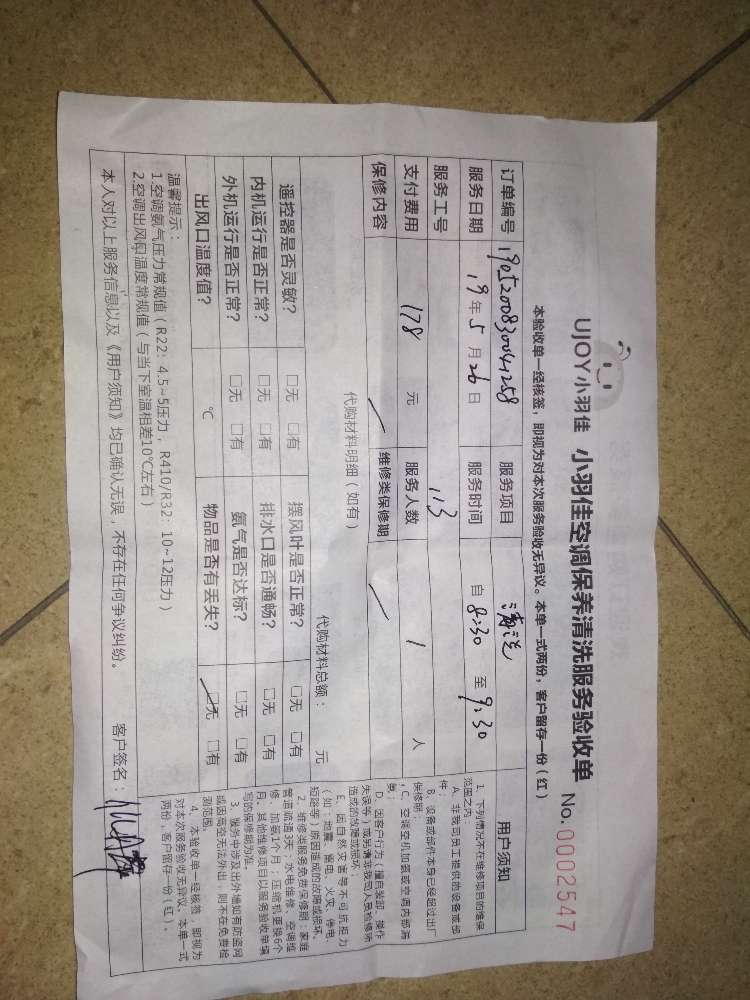 UJOY小羽佳 小羽佳空调保养清洗服务验收单 No. 0002547
本验收单一经核签，即视为对本次服务验收无异议。本单一式两份，客户留存一份(红)
订单编号 服务项目 清洗
服务日期 19年5月26日 服务时间 自 8:30 至 9:30
服务工号 113
支付费用 178 元 服务人数 1 人
保修内容 维修类保修期
代购材料明细（如有） 代购材料总额： 元
遥控器是否灵敏？ □无 □有 摆风叶是否正常？ □无 □有
内机运行是否正常？ □无 □有 排水口是否通畅？ □无 □有
外机运行是否正常？ □无 □有 氨气是否达标？ □无 □有
出风口温度值？ ℃ 物品是否有丢失？ □无 □有
温馨提示：
1.空调氨气压力常规值（R22：4.5~5压力，R410/R32：10~12压力）
2.空调出风口温度常规值（与当下室温相差10℃左右）
本人对以上服务信息以及《用户须知》均已确认无误，不存在任何争议纠纷。 客户签名：
用户须知
1、下列情况不在维修项目的维保
范围之内：
A、非我司员工提供的设备或部
件；
B、设备或部件本身已经超过出厂
保修期；
C、空调空机加装或空调内部漏
D、因客户行为（擅自装卸、操作
失误等）或另请非我司人员检修所
造成的故障或损坏；
E、因自然灾害等不可抗拒力
（如：地震、雷电、火灾、停电、
短路等）原因造成的故障或损坏。
2、维修类服务免费保修期：家庭
管道疏通3天；水电维修、空调维
修、加氨1个月；压缩机更换6个
月，其他维修项目以服务验收单填
写的保修期为准。
3、服务中涉及出外墙如有防盗网
或因高空无法外出，则不在免费检
测范围。
4、本验收单一经核签，即视为
对本次服务验收无异议。本单一式
两份，客户留存一份（红）。